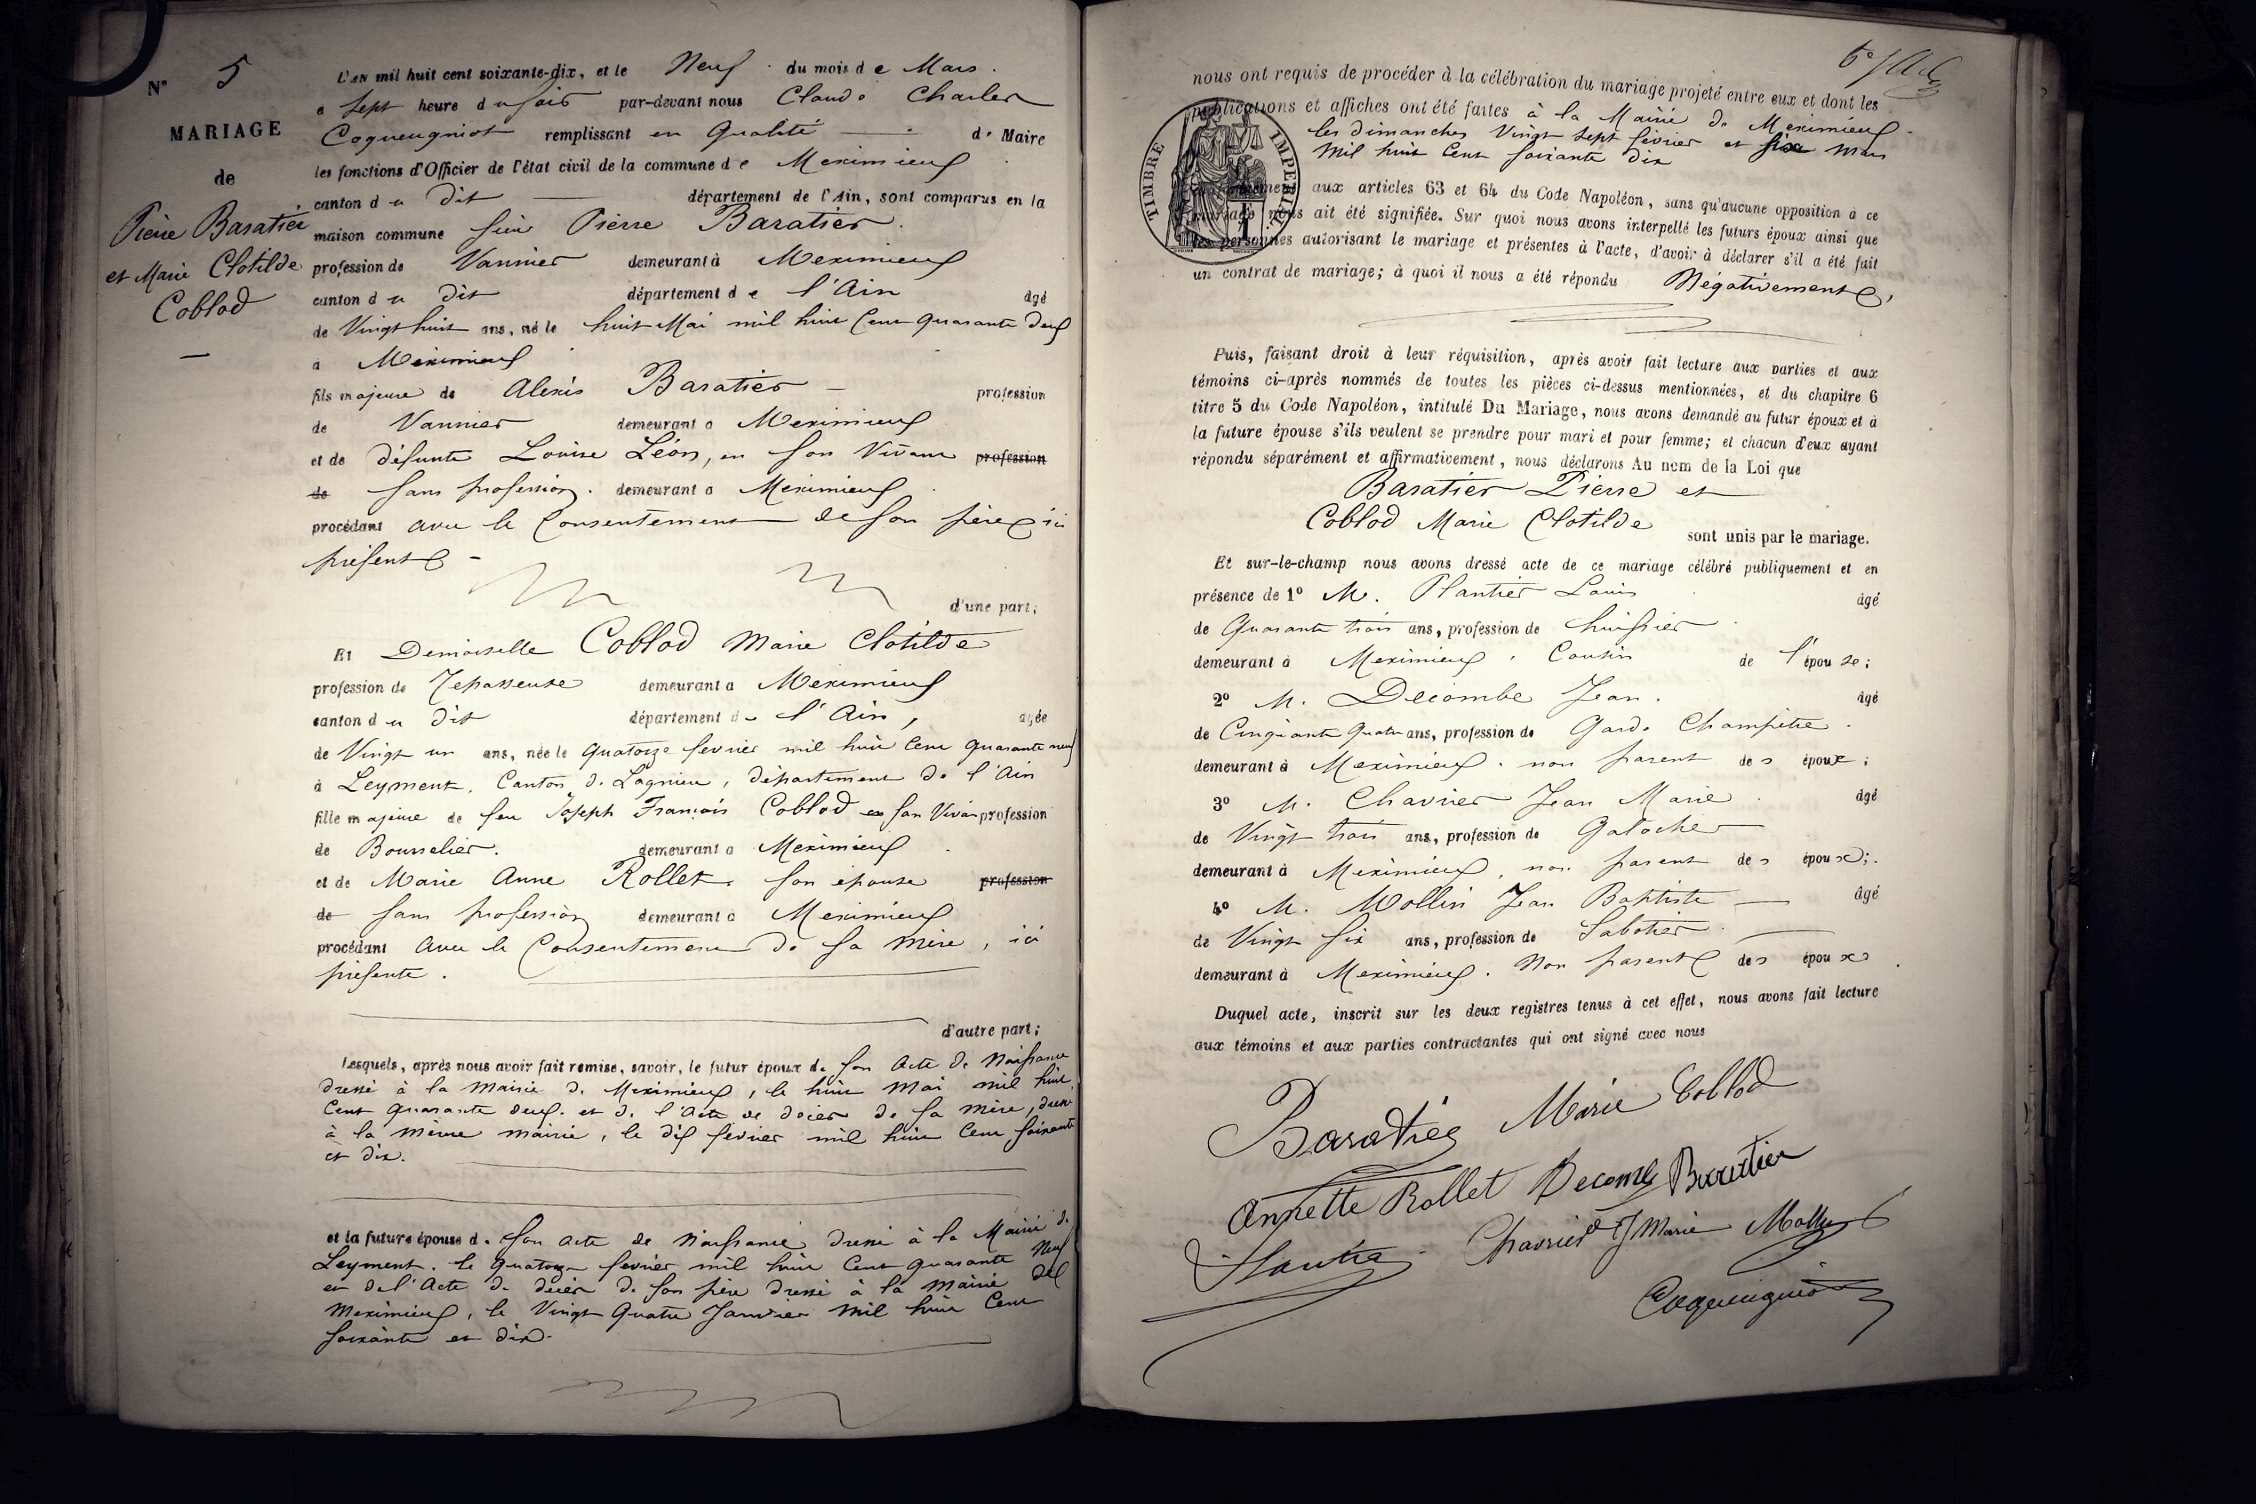 N° 5
MARIAGE
de
Pierre Baratier
et Marie Clotilde
Coblod
L'an mil huit cent soixante-dix, et le Neuf du mois de Mars
a Sept heure du soir par-devant nous Claude Charles
Coqueugniot remplissant en Qualité de Maire
les fonctions d'Officier de l'état civil de la commune de Meximieux
canton du dit département de l'Ain, sont comparus en la
maison commune sieur Pierre Baratier
profession de Vannier demeurant à Meximieux
canton du dit département de l'Ain âgé
de Vingt huit ans, né le huit Mai mil huit Cent quarante deux
à Meximieux
fils majeure de Alexis Baratier profession
de Vannier demeurant à Meximieux
et de défunte Louise Léon, en son Vivant profession
de sans profession. demeurant à Meximieux
procédant avec le Consentement de son père ici
présent
d'une part;
Et Demoiselle Coblod Marie Clotilde
profession de Repasseuse demeurant à Meximieux
canton du dit département de l'Ain, agée
de Vingt un ans, née le quatorze fevrier mil huit Cent quarante neuf
à Leyment, Canton de Lagnieu, département de l'Ain
fille majeure de feu Joseph François Coblod en son Vivant profession
de Bourrelier. demeurant à Meximieux
et de Marie Anne Rollet son épouse profession
de sans profession demeurant à Meximieux
procédant avec le Consentement de sa mère, ici
présente.
d'autre part;
Lesquels, après nous avoir fait remise, savoir, le futur époux de son acte de Naissance
dressé à la Mairie de Meximieux, le huit Mai mil huit
Cent quarante deux. et de l'acte de décès de sa mère, dressé
à la même mairie, le dix février mil huit Cent soixante
et dix.
et la future épouse de son acte de Naissance dressé à la Mairie de
Leyment. le quatorze fevrier mil huit Cent quarante Neuf
et de l'acte de décès de son père dressé à la mairie de
Meximieux, le Vingt Quatre Janvier mil huit Cent
soixante et dix.
nous ont requis de procéder à la célébration du mariage projeté entre eux et dont les
publications et affiches ont été faites à la Mairie de Meximieux
les dimanches Vingt Sept février et six Mars
Mil huit Cent soixante dix
TIMBRE IMPERIAL
aux articles 63 et 64 du Code Napoléon, sans qu'aucune opposition à ce
mariage nous ait été signifiée. Sur quoi nous avons interpellé les futurs époux ainsi que
les personnes autorisant le mariage et présentes à l'acte, d'avoir à déclarer s'il a été fait
un contrat de mariage; à quoi il nous a été répondu Négativement
Puis, faisant droit à leur réquisition, après avoir fait lecture aux parties et aux
témoins ci-après nommés de toutes les pièces ci-dessus mentionnées, et du chapitre 6
titre 5 du Code Napoléon, intitulé Du Mariage, nous avons demandé au futur époux et à
la future épouse s'ils veulent se prendre pour mari et pour femme; et chacun d'eux ayant
répondu séparément et affirmativement, nous déclarons Au nom de la Loi que
Baratier Pierre et
Coblod Marie Clotilde sont unis par le mariage.
Et sur-le-champ nous avons dressé acte de ce mariage célébré publiquement et en
présence de 1° M. Plantier Louis âgé
de Quarante trois ans, profession de huissier
demeurant à Meximieux, Cousin de l'épouse;
2° M. Decombe Jean. âgé
de Cinquante Quatre ans, profession de Garde Champêtre.
demeurant à Meximieux. non parent des époux;
3° M. Chavrier Jean Marie âgé
de Vingt trois ans, profession de Galocher
demeurant à Meximieux, non parent des époux;
4° M. Mollin Jean Baptiste âgé
de Vingt six ans, profession de Sabotier
demeurant à Meximieux. Non parent des époux.
Duquel acte, inscrit sur les deux registres tenus à cet effet, nous avons fait lecture
aux témoins et aux parties contractantes qui ont signé avec nous
Baratier Marie Coblod
Annette Rollet Decombe Baratier
Plantier Chavrier J Marie Mollin
Coqueugniot